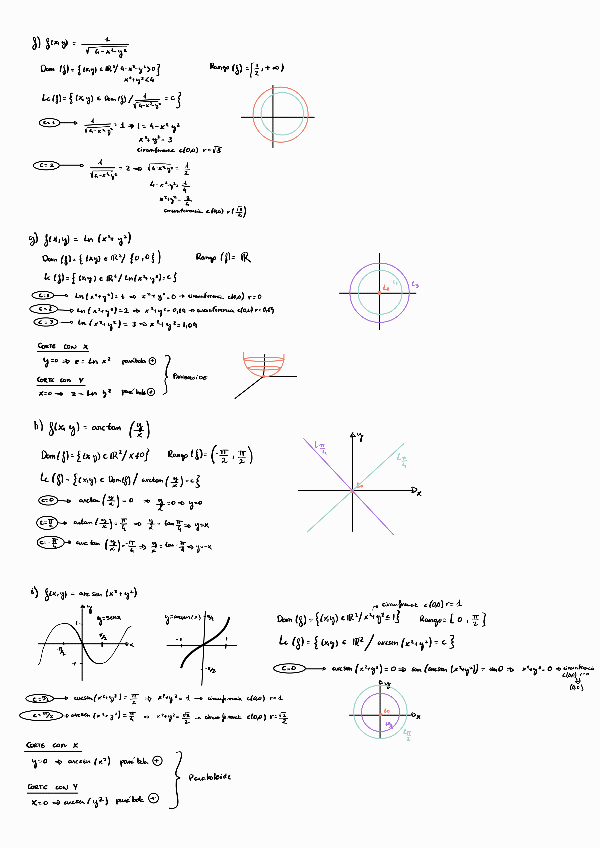 f) f(x,y) = 1/√(4-x²-y²)
Dom (f) = {(x,y) ∈ ℝ² / 4-x²-y²>0}
x²+y²<4
Rango (f) = [1/2, +∞)
Lc (f) = {(x,y) ∈ Dom(f) / 1/√(4-x²-y²) = c}
c=1 → 1/√(4-x²-y²) = 1 → 1 = 4-x²-y²
x²+y² = 3
circunferencia c(0,0) r=√3
c=2 → 1/√(4-x²-y²) = 2 ⇒ √(4-x²-y²) = 1/2
4-x²-y² = 1/4
circunferencia c(0,0) r
g) f(x,y) = Ln (x²+y²)
Dom (f) = {(x,y) ∈ ℝ² / {0,0}}
Rango (f) = ℝ
Lc (f) = {(x,y) ∈ ℝ² / Ln(x²+y²) = c}
⇒ x²+y² = 0 → circunferencia c(0,0) r=0
c=2 → Ln (x²+y²) = 2 ⇒ x²+y² = 0,69 → circunferencia c(0,0) r=0,69
c=3 → Ln (x²+y²) = 3 ⇒ x²+y² = 1,09
L3
CORTE CON X
y=0 ⇒ z = Ln x² parábola (+)
CORTE CON Y
x=0 ⇒ z = Ln y² parábola (+)
PARABOLOIDE
h) f(x,y) = arctan (y/x)
Dom (f) = {(x,y) ∈ ℝ² / x≠0}
Rango (f) = (-π/2, π/2)
Lc (f) = {(x,y) ∈ Dom(f) / arctan (y/x) = c}
c=0 → arctan (y/x) = 0 ⇒ y/x = 0 ⇒ y=0
c=π/4 → arctan (y/x) = π/4 ⇒ y/x = tan π/4 ⇒ y=x
c=-π/4 → arc tan (y/x) = -π/4 ⇒ y/x = tan -π/4 ⇒ y=-x
y
x
i) f(x,y) = arcsen (x²+y²)
y
y=senx
x
y=arcsen(x)
circunferencia c(0,0) r=1
Dom (f) = {(x,y) ∈ ℝ² / x²+y² ≤ 1}
Rango = [0, π/2]
Lc (f) = {(x,y) ∈ ℝ² / arcsen (x²+y²) = c}
c=0 → arcsen (x²+y²) = 0 ⇒ sen (arcsen (x²+y²)) = sen0 ⇒ x²+y² = 0 → circunferencia
(0,0)
c=π/2 → arcsen (x²+y²) = π/2 ⇒ x²+y² = 1 → circunferencia c(0,0) r=1
⇒ x²+y² = √2/2 → circunferencia c(0,0) r=√2/2
y
x
CORTE CON X
y=0 ⇒ arcsen (x²) parábola (+)
CORTE CON Y
x=0 ⇒ arcsen (y²) parábola (+)
Paraboloide